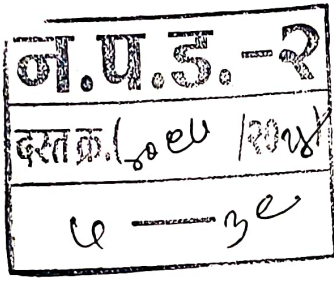 न.प.ड.-२
दस्त क्र. /२०२४
५ — ३९